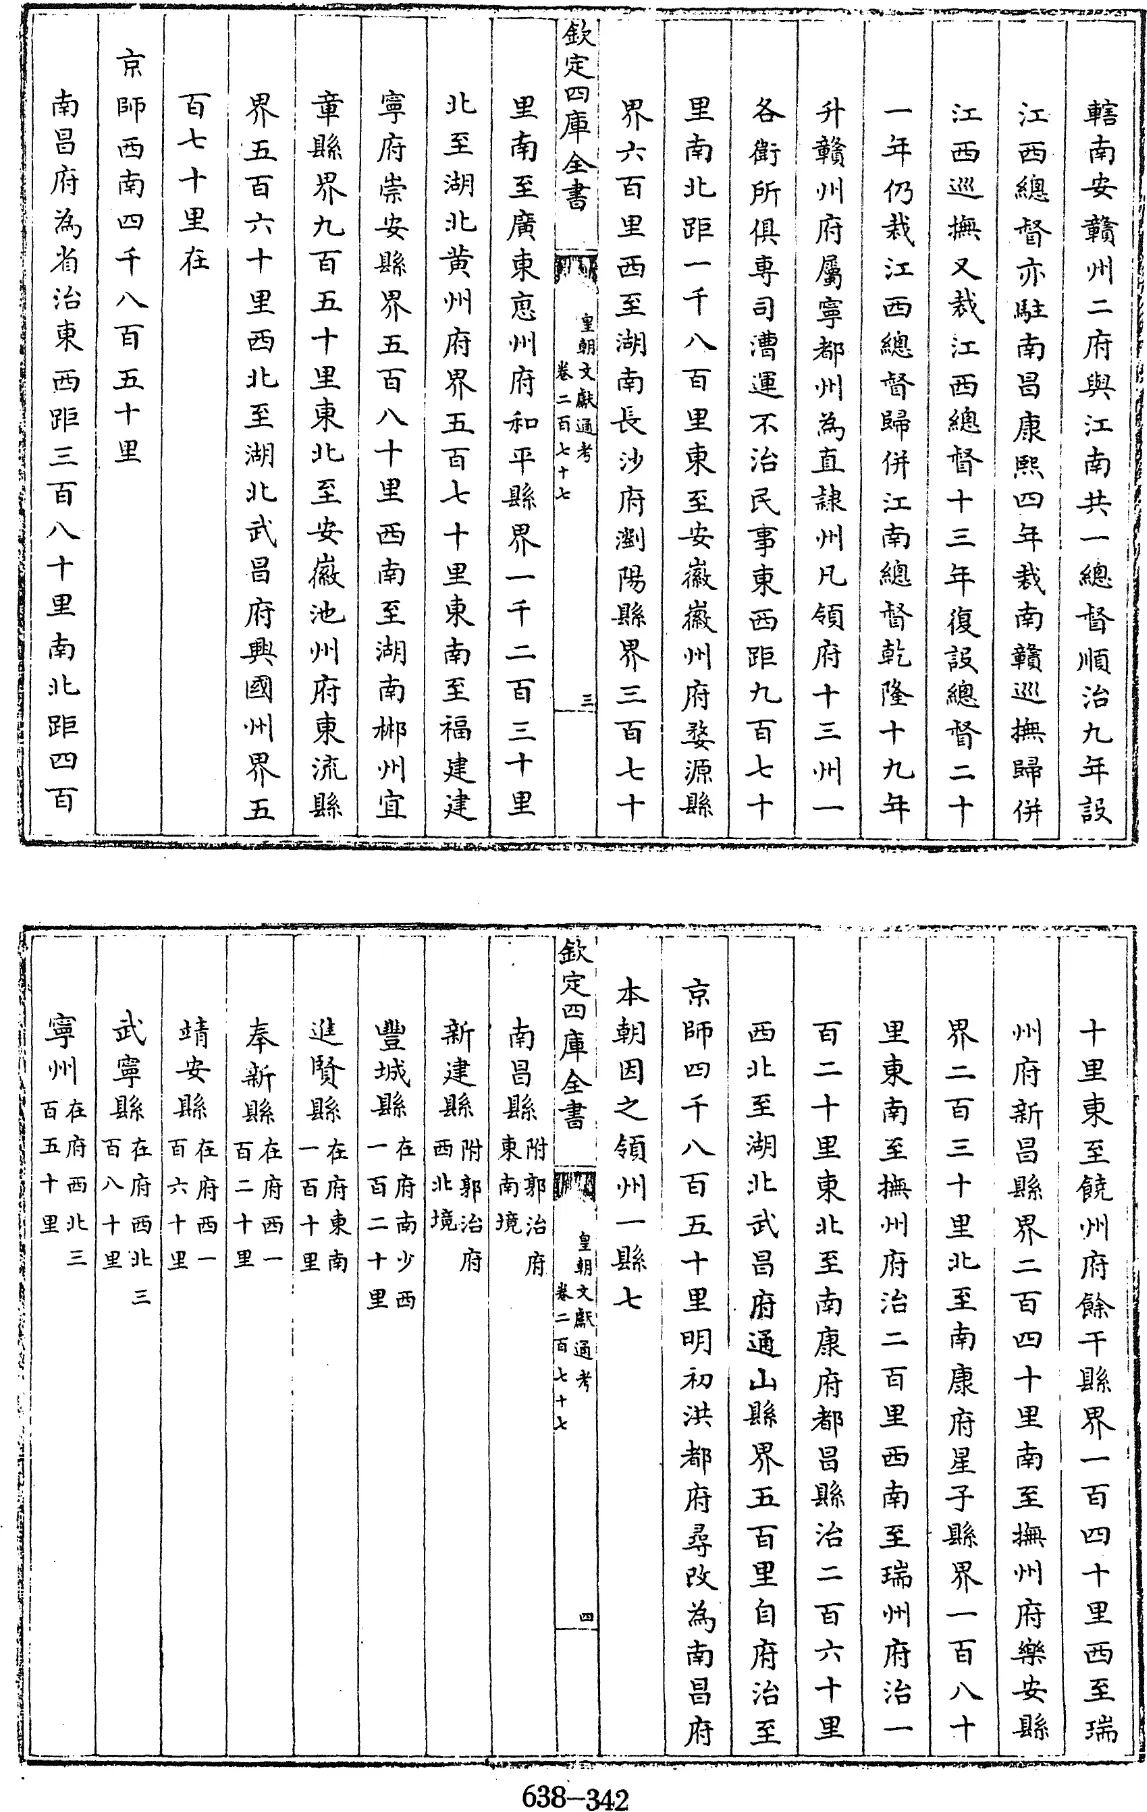 轄南安贛州二府與江南共一總督順治九年設
江西總督亦駐南昌康熙四年裁南贛巡撫歸併
江西巡撫又裁江西總督十三年復設總督二十
一年仍裁江西總督歸併江南總督乾隆十九年
升贛州府屬寧都州為直隷州凡領府十三州一
各衛所俱専司漕運不治民事東西距九百七十
里南北距一千八百里東至安徽徽州府婺源縣
界六百里西至湖南長沙府瀏陽縣界三百七十
欽定四庫全書
皇朝文獻通考
卷二百七十七
三
里南至廣東恵州府和平縣界一千二百三十里
北至湖北黄州府界五百七十里東南至福建建
寧府崇安縣界五百八十里西南至湖南郴州宜
章縣界九百五十里東北至安徽池州府東流縣
界五百六十里西北至湖北武昌府興國州界五
百七十里在
京師西南四千八百五十里
南昌府為省治東西距三百八十里南北距四百
十里東至饒州府餘干縣界一百四十里西至瑞
州府新昌縣界二百四十里南至撫州府樂安縣
界二百三十里北至南康府星子縣界一百八十
里東南至撫州府治二百里西南至瑞州府治一
百二十里東北至南康府都昌縣治二百六十里
西北至湖北武昌府通山縣界五百里自府治至
京師四千八百五十里明初洪都府尋改為南昌府
本朝因之領州一縣七
欽定四庫全書
皇朝文獻通考
卷二百七十七
四
南昌縣附郭治府東南境
新建縣附郭治府西北境
豐城縣在府南少西一百二十里
進賢縣在府東南一百十里
奉新縣在府西一百二十里
靖安縣在府西一百六十里
武寧縣在府西北三百八十里
寧州在府西北三百五十里
638-342